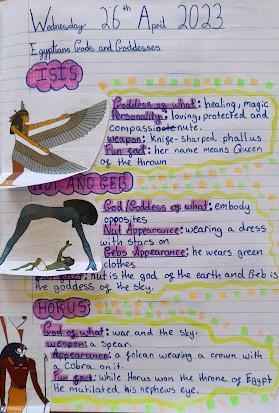 Wednesday 26th April 2023
Egyptians Gods and Goddesses
ISIS
Goddess of what: healing, magic
Personality: loving, protected and
compassionute.
weapon: Knife-sharped phallus
Fun fact: her name means Queen
of the thrown
NUT AND GEB
God/Goddess of what: embody
opposites
Nut Appearance: wearing a dress
with stars on
Gebs Appearance: he wears green
clothes
nut is the god of the earth and Geb is
the goddess of the sky.
HORUS
God of what: war and the sky.
weapon: a Spear.
Appearance: a folcan wearing a crown with
a Cobra on it.
Fun fact: while Horus won the throne of Egypt
He mutilated his nephews eye.